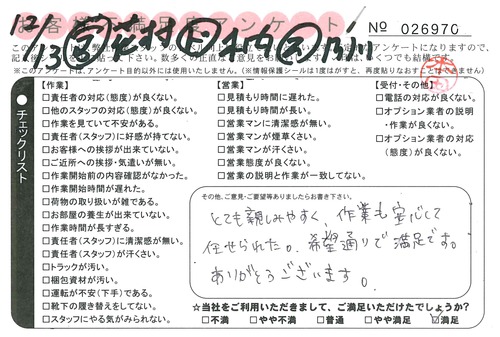 お客様ご満足度アンケート
No 026970
12/13
※このアンケートは、アンケート目的以外には使用いたしません。(※情報保護シールは1度はがすと、再度貼りなおすことはできません)
チェックリスト
【作業】
□責任者の対応(態度)が良くない。
□他のスタッフの対応(態度)が良くない。
□作業を見ていて不安がある。
□責任者(スタッフ)に好感が持てない。
□お客様への挨拶が出来ていない。
□ご近所への挨拶・気遣いが無い。
□作業開始前の内容確認がなかった。
□作業開始時間が遅れた。
□荷物の取り扱いが雑である。
□お部屋の養生が出来ていない。
□作業時間が長すぎる。
□責任者(スタッフ)に清潔感が無い。
□責任者(スタッフ)が汗くさい。
□トラックが汚い。
□梱包資材が汚い。
□運転が不安(下手)である。
□靴下の履き替えをしてない。
□スタッフにやる気がみられない。
【営業】
□見積もり時間に遅れた。
□見積もり時間が長い。
□営業マンに清潔感が無い。
□営業マンが煙草くさい。
□営業マンが汗くさい。
□営業態度が良くない。
□営業の説明と作業が一致してない。
【受付・その他】
□電話の対応が良くない。
□オプション業者の説明
・作業が良くない。
□オプション業者の対応
(態度)が良くない。
その他、ご意見・ご要望等ありましたらお書き下さい。
とても親しみやすく、作業も安心して
任せられた。希望通りで満足です。
ありがとうございます。
☆当社をご利用いただきまして、ご満足いただけたでしょうか?
□不満 □やや不満 □普通 □やや満足 □満足